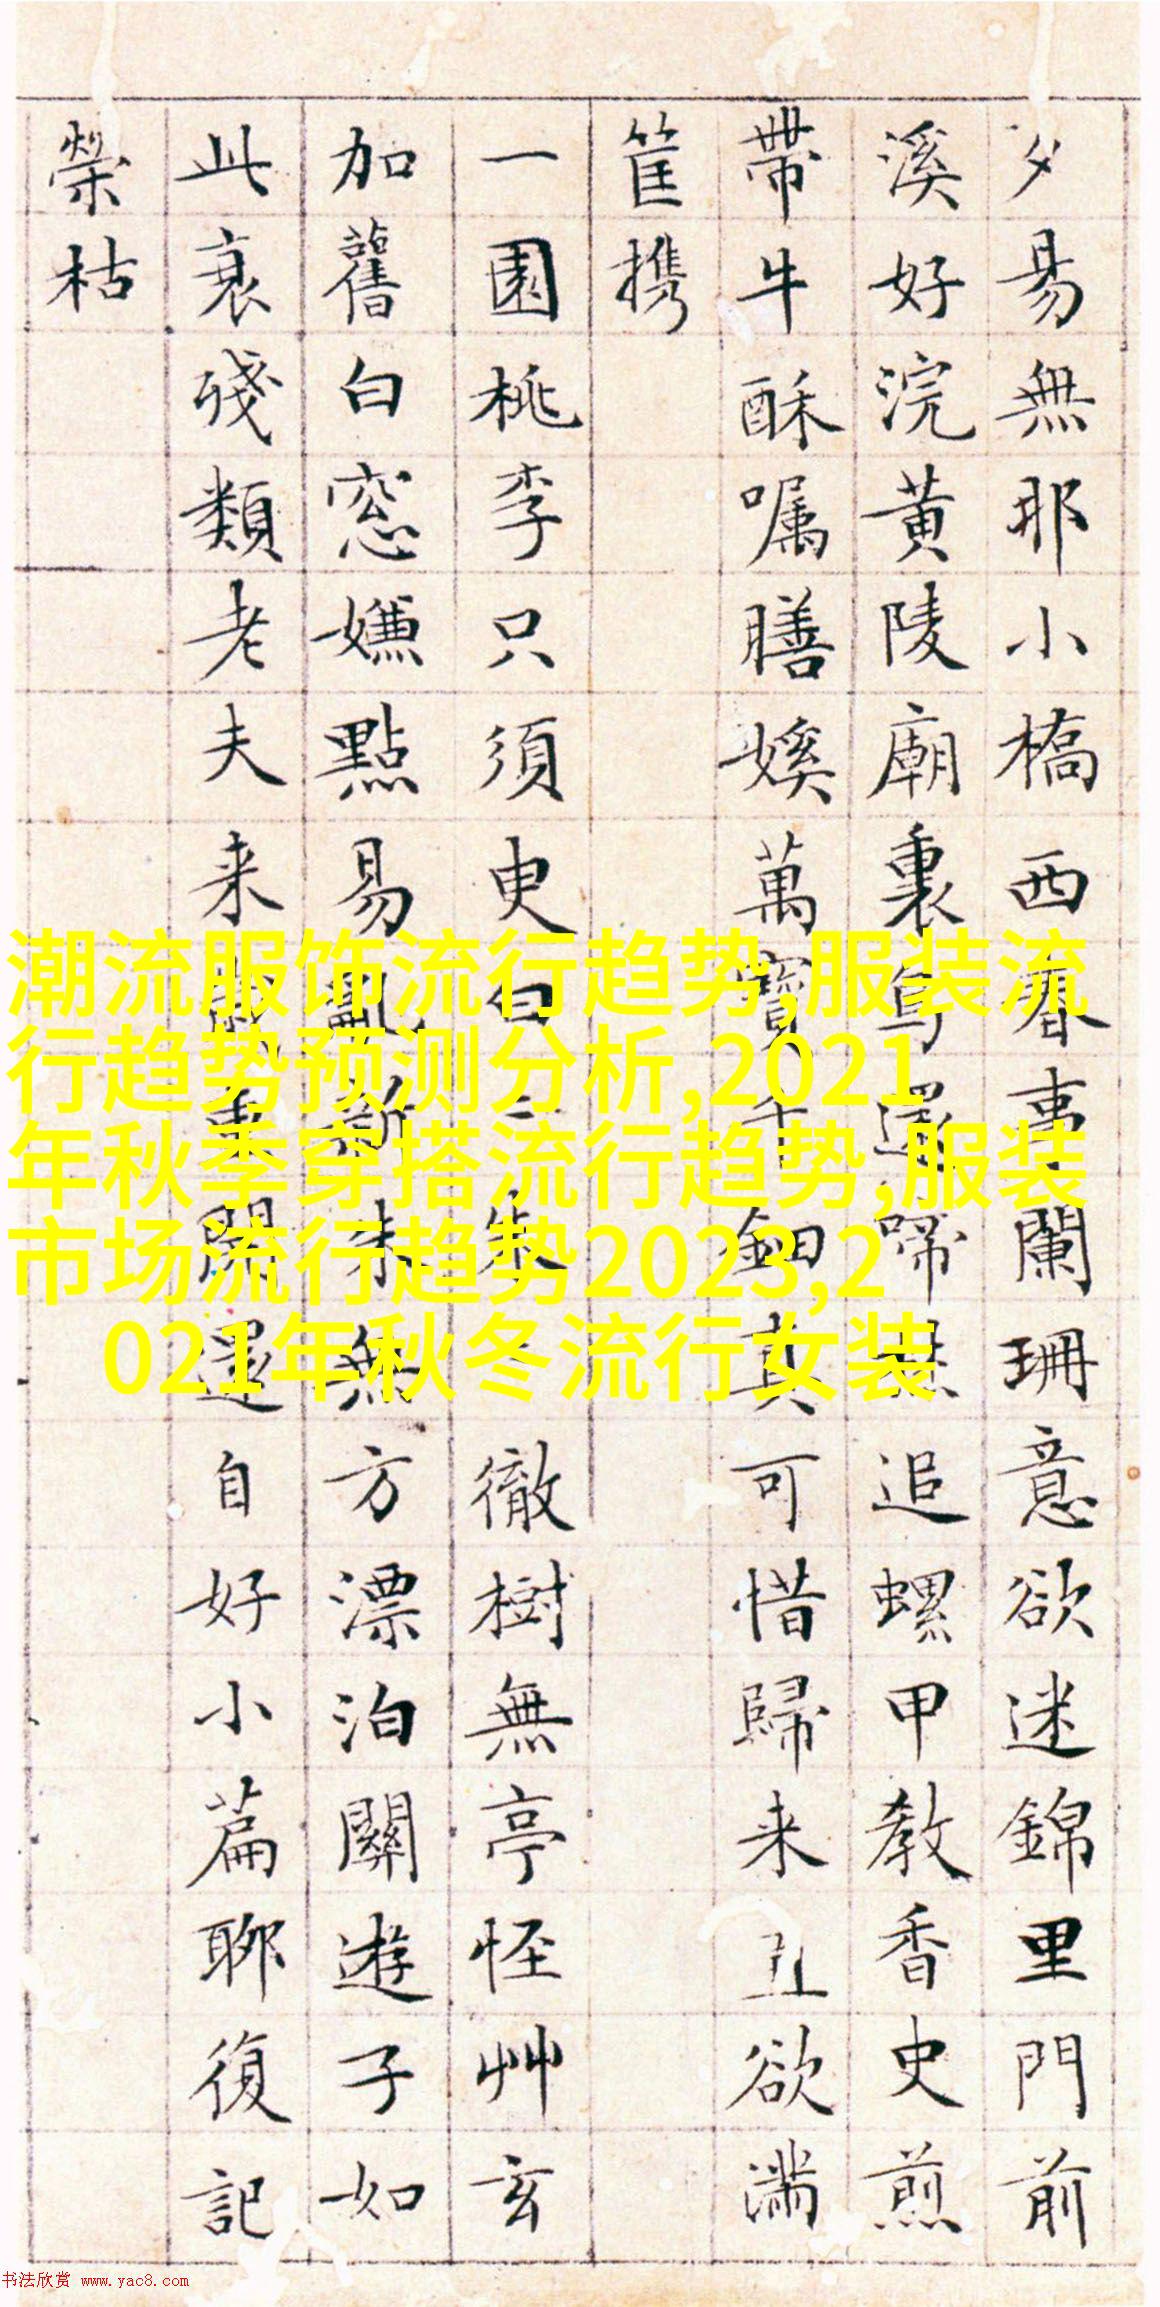 夕昜無耶小橋西春事闌珊意欲迷錦里門前
溪好浣黃陵廟裏鳥還啼追螺甲教香史煎
帶牛酥囑膳㜎萬寶千鈿真可惜歸来丑欲滿
筐携
一園桃李只須臾白朱徹樹無亭怪艸玄
加舊白窓嫌點易亂新無方漂泊關遊子如
此衰殘類老夫来還自好小篇聊復記
榮枯
潮流服饰流行趋势,服装流
行趋势预测分析,2021
年秋季穿搭流行趋势,服装
市场流行趋势2023,2
021年秋冬流行女装
书法欣赏 www.yac8.com